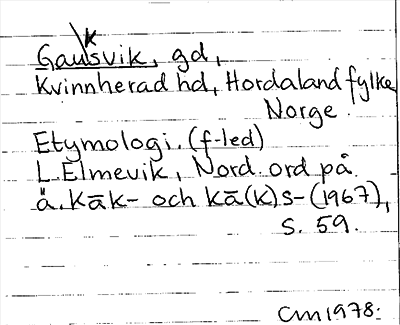 Gauksvik, gd,
Kvinnherad hd, Hordaland fylke
Norge.
Etymologi. (f-led)
L. Elmevik, Nord. ord på
ä. kāk- och kā(k)s- (1967),
s. 59.
CM 1978: